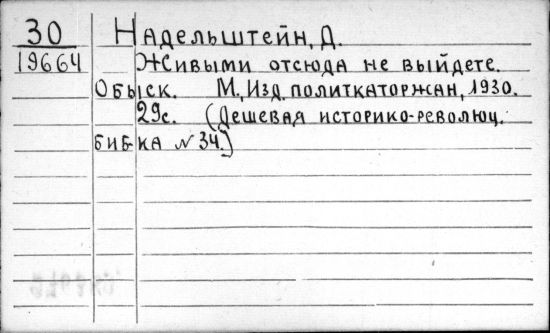 30 Надельштейн, Д.
19664 Живыми отсюда не выйдете.
Обыск. М, Изд. политкаторжан, 1930.
29с. (Дешевая историко-революц.
биб-ка № 34.)